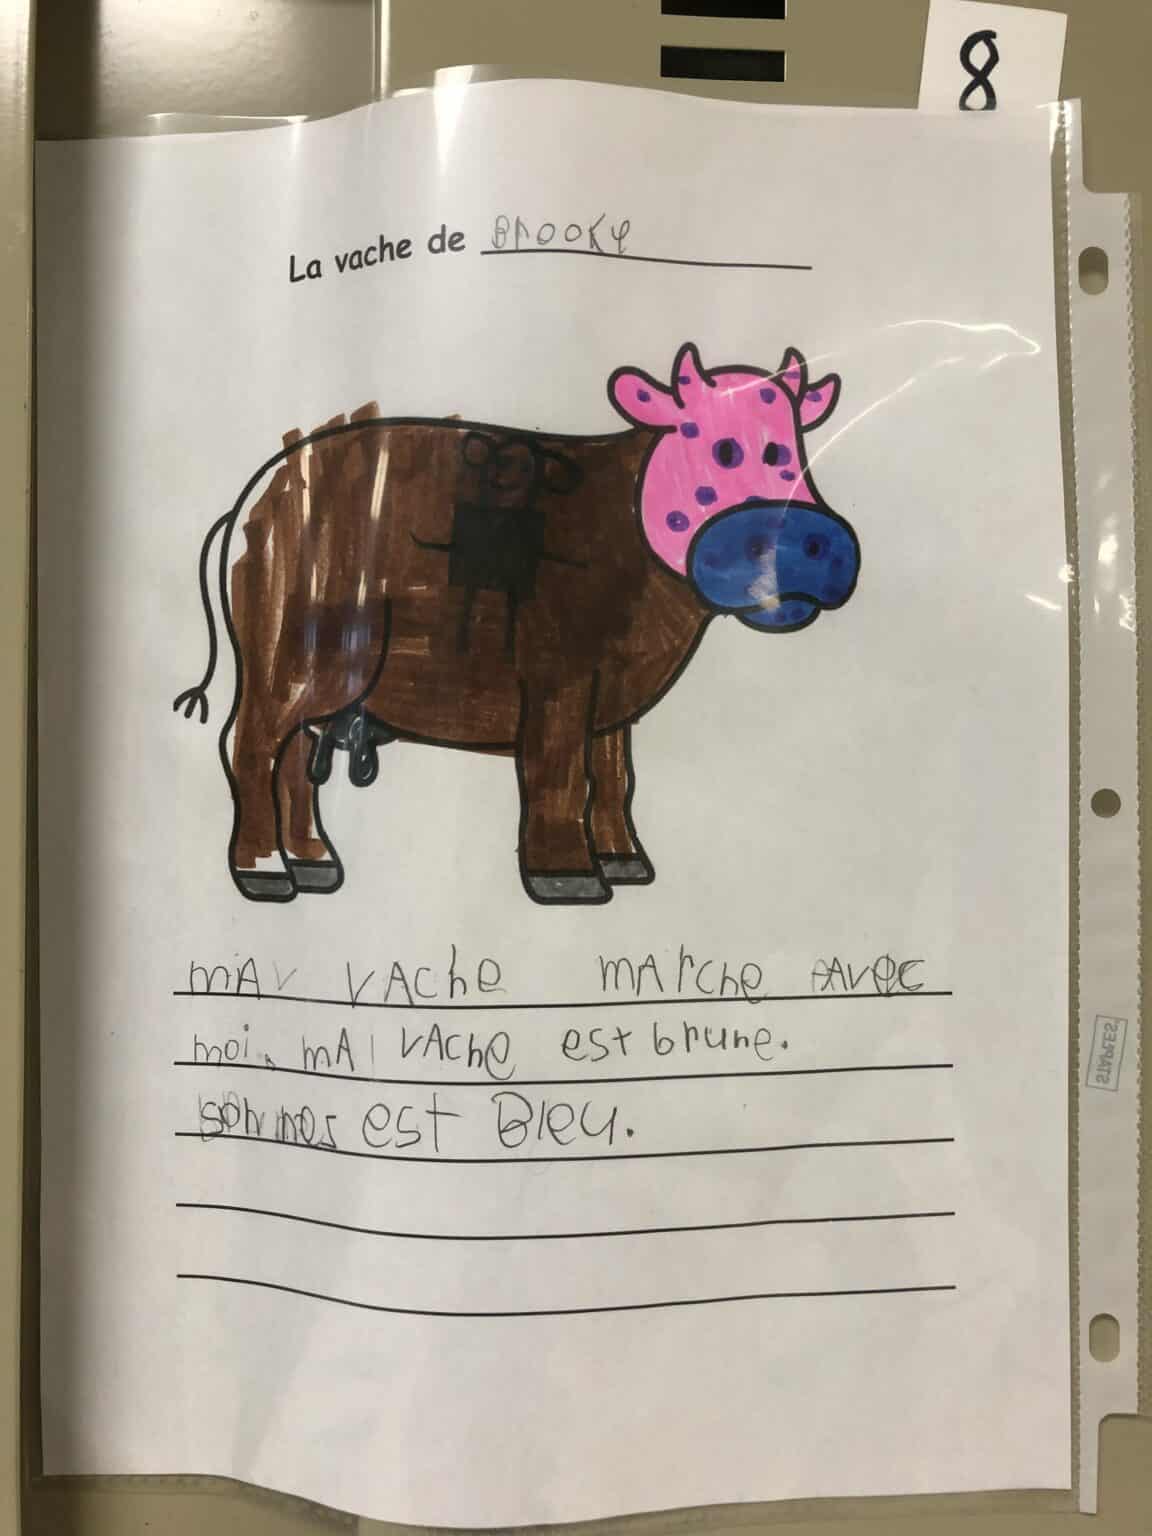 8
La vache de Brooky
mA vAche mArche Avec
moi. mA vAche est brune.
est Bleu.
STAPLES